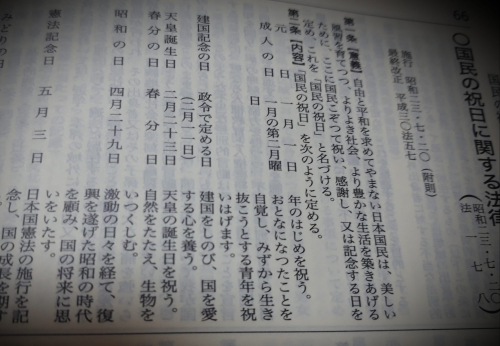 66
〇国民の祝日に関する法律
(昭和二三・七・二〇
法一七八)
施行 昭和二三・七・二〇(附則)
最終改正 平成三〇法五七
第一条【意義】自由と平和を求めてやまない日本国民は、美しい
風習を育てつつ、よりよき社会、より豊かな生活を築きあげる
ために、ここに国民こぞつて祝い、感謝し、又は記念する日を
定め、これを「国民の祝日」と名づける。
第二条【内容】「国民の祝日」を次のように定める。
元日 一月一日 年のはじめを祝う。
成人の日 一月の第二月曜日 おとなになつたことを
自覚し、みずから生き
抜こうとする青年を祝
いはげます。
建国記念の日 政令で定める日 建国をしのび、国を愛
(二月一一日) する心を養う。
天皇誕生日 二月二十三日 天皇の誕生日を祝う。
春分の日 春分日 自然をたたえ、生物を
いつくしむ。
昭和の日 四月二十九日 激動の日々を経て、復
興を遂げた昭和の時代
を顧み、国の将来に思
いをいたす。
憲法記念日 五月三日 日本国憲法の施行を記
念し、国の成長を期す
みどりの日